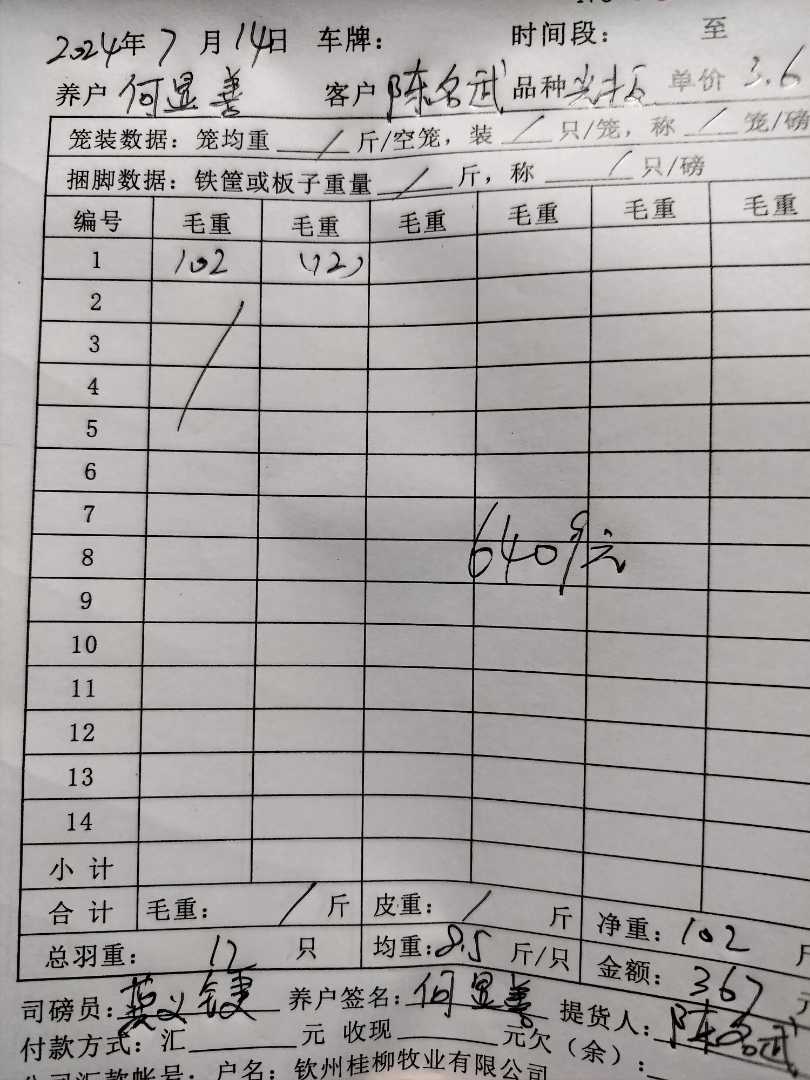 2024年7月14日 车牌： 时间段： 至
养户 何显善 客户 陈名武 品种 光板 单价 3.6
笼装数据：笼均重 / 斤/空笼，装 / 只/笼，称 / 笼/磅
捆脚数据：铁筐或板子重量 / 斤，称 / 只/磅
编号 毛重 毛重 毛重 毛重 毛重 毛重
1 102 (12)
2
3
4
5
6
7
8 6409元
9
10
11
12
13
14
小计
合计 毛重： / 斤 皮重： / 斤 净重：102 斤
总羽重： 12 只 均重：8.5 斤/只 金额：367 元
司磅员： 养户签名：何显善 提货人：陈名武
付款方式：汇 元 收现 元欠（余）：
公司汇款帐号：户名：钦州桂柳牧业有限公司